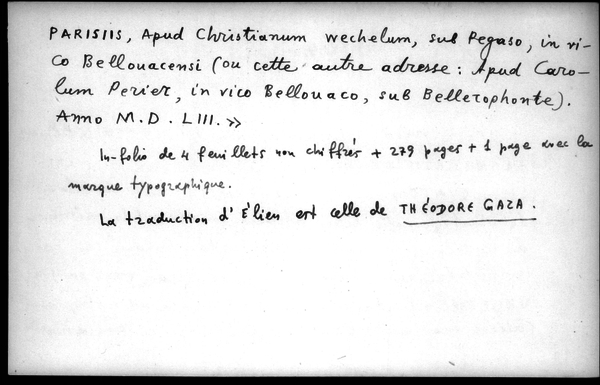 PARISIIS, Apud Christianum Wechelum, sub Pegaso, in vi-
co Bellovacensi (ou cette autre adresse : Apud Caro-
lum Perier, in vico Bellovaco, sub Bellerophonte).
Anno M.D.LIII. »
In-folio de 4 feuillets non chiffrés + 279 pages + 1 page avec la
marque typographique.
La traduction d'Élien est celle de THÉODORE GAZA.